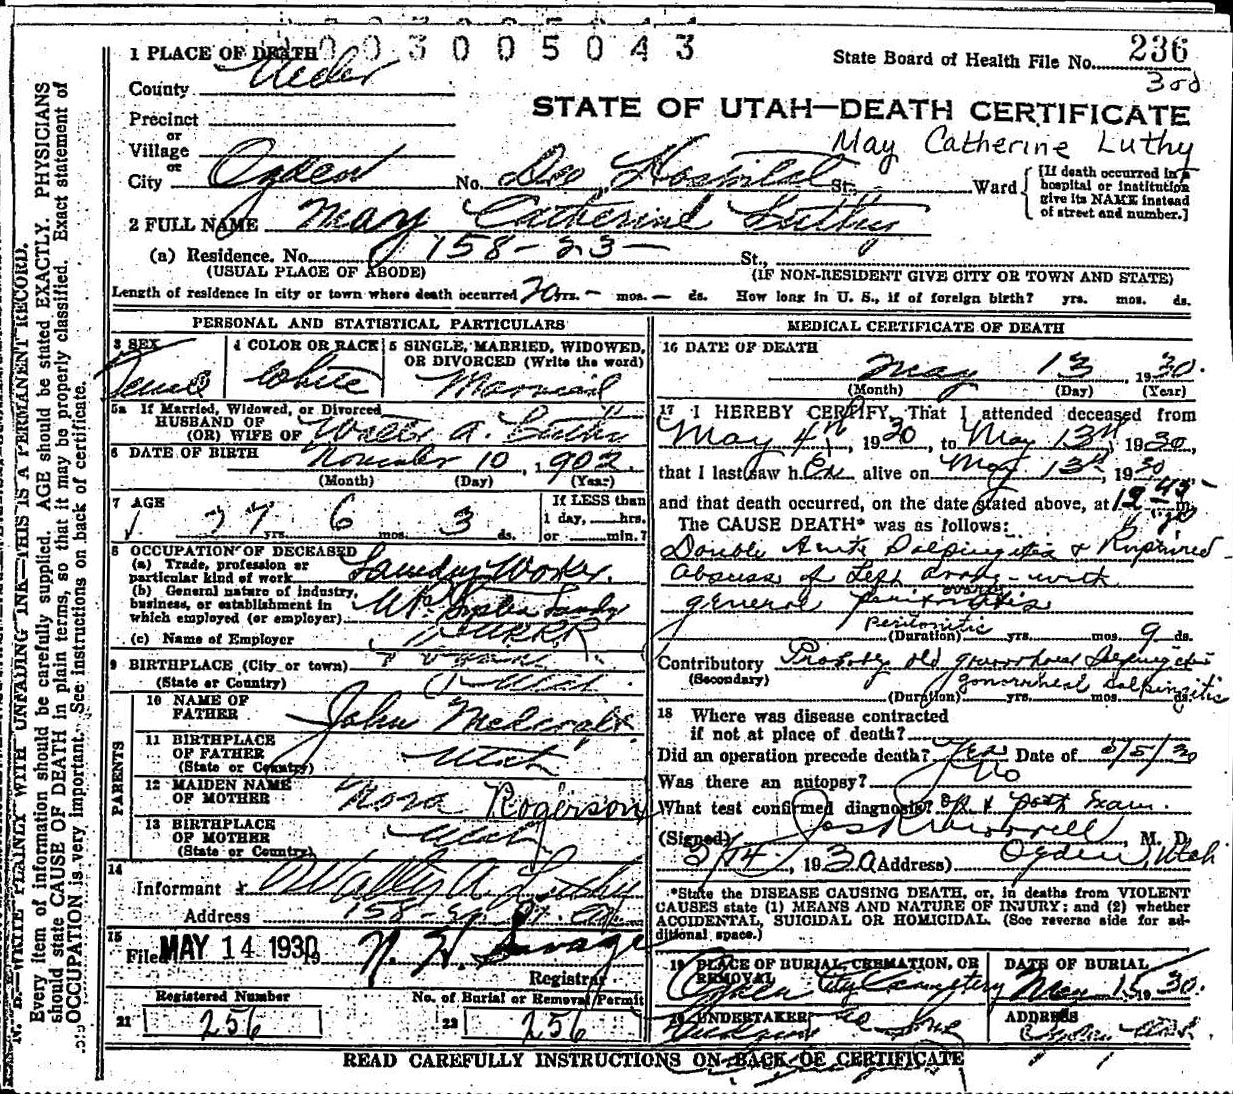 003005043
1 PLACE OF DEATH
State Board of Health File No. 236
County Weber
Precinct
STATE OF UTAH—DEATH CERTIFICATE
or
Village
May Catherine Luthy
or
City Ogden No. Dee Hospital St., Ward
[If death occurred in a
hospital or institution
give its NAME instead
of street and number.]
2 FULL NAME May Catherine Luthy
(a) Residence. No. 158-23- St.,
(USUAL PLACE OF ABODE) (IF NON-RESIDENT GIVE CITY OR TOWN AND STATE)
Length of residence in city or town where death occurred 20 yrs. - mos. - ds. How long in U. S., if of foreign birth? yrs. mos. ds.
PERSONAL AND STATISTICAL PARTICULARS
3 SEX 4 COLOR OR RACE 5 SINGLE, MARRIED, WIDOWED,
OR DIVORCED (Write the word)
Female White Married
5a If Married, Widowed, or Divorced
HUSBAND OF
(OR) WIFE OF Walter A. Luthy
6 DATE OF BIRTH November 10, 1902
(Month) (Day) (Year)
7 AGE 27 yrs. 6 mos. 3 ds.
If LESS than
1 day, hrs.
or min.?
8 OCCUPATION OF DECEASED
(a) Trade, profession or
particular kind of work Laundry Worker.
(b) General nature of industry,
business, or establishment in
which employed (or employer)
(c) Name of Employer
9 BIRTHPLACE (City or town)
(State or Country) Utah
PARENTS
10 NAME OF
FATHER John
11 BIRTHPLACE
OF FATHER
(State or Country) Utah
12 MAIDEN NAME
OF MOTHER Nora Rogerson
13 BIRTHPLACE
OF MOTHER
(State or Country) Utah
14
Informant Walter A. Luthy
Address 158-
15
Filed MAY 14 1930, 19 N. H. Savage
Registrar
Registered Number No. of Burial or Removal Permit
21 256 22 256
MEDICAL CERTIFICATE OF DEATH
16 DATE OF DEATH
May 13, 1930.
(Month) (Day) (Year)
17 I HEREBY CERTIFY, That I attended deceased from
May 4th, 1930, to May 13th, 1930,
that I last saw her alive on May 13th, 1930
and that death occurred, on the date stated above, at 12-45 m.
The CAUSE DEATH* was as follows:
Double Acute Salpingitis & Ruptured
abscess of Left ovary - with
ovary
general peritonitis
peritonitis
(Duration) yrs. mos. 9 ds.
Contributory Probably old gonorrheal Salpingitis
(Secondary) gonorrheal salpingitis
(Duration) yrs. mos. ds.
18 Where was disease contracted
if not at place of death?
Did an operation precede death? Yes Date of 5/5/30
Was there an autopsy? No
What test confirmed diagnosis? op & post Exam.
(Signed) M. D.
5/14, 1930 (Address) Ogden, Utah
*State the DISEASE CAUSING DEATH, or, in deaths from VIOLENT
CAUSES state (1) MEANS AND NATURE OF INJURY; and (2) whether
ACCIDENTAL, SUICIDAL OR HOMICIDAL. (See reverse side for ad-
ditional space.)
19 PLACE OF BURIAL, CREMATION, OR
REMOVAL DATE OF BURIAL
Ogden City Cemetery May 15, 1930.
20 UNDERTAKER ADDRESS
Ogden Utah
READ CAREFULLY INSTRUCTIONS ON BACK OF CERTIFICATE
N. B.—WRITE PLAINLY WITH UNFADING INK—THIS IS A PERMANENT RECORD.
Every item of information should be carefully supplied. AGE should be stated EXACTLY. PHYSICIANS
should state CAUSE OF DEATH in plain terms, so that it may be properly classified. Exact statement of
OCCUPATION is very important. See instructions on back of certificate.